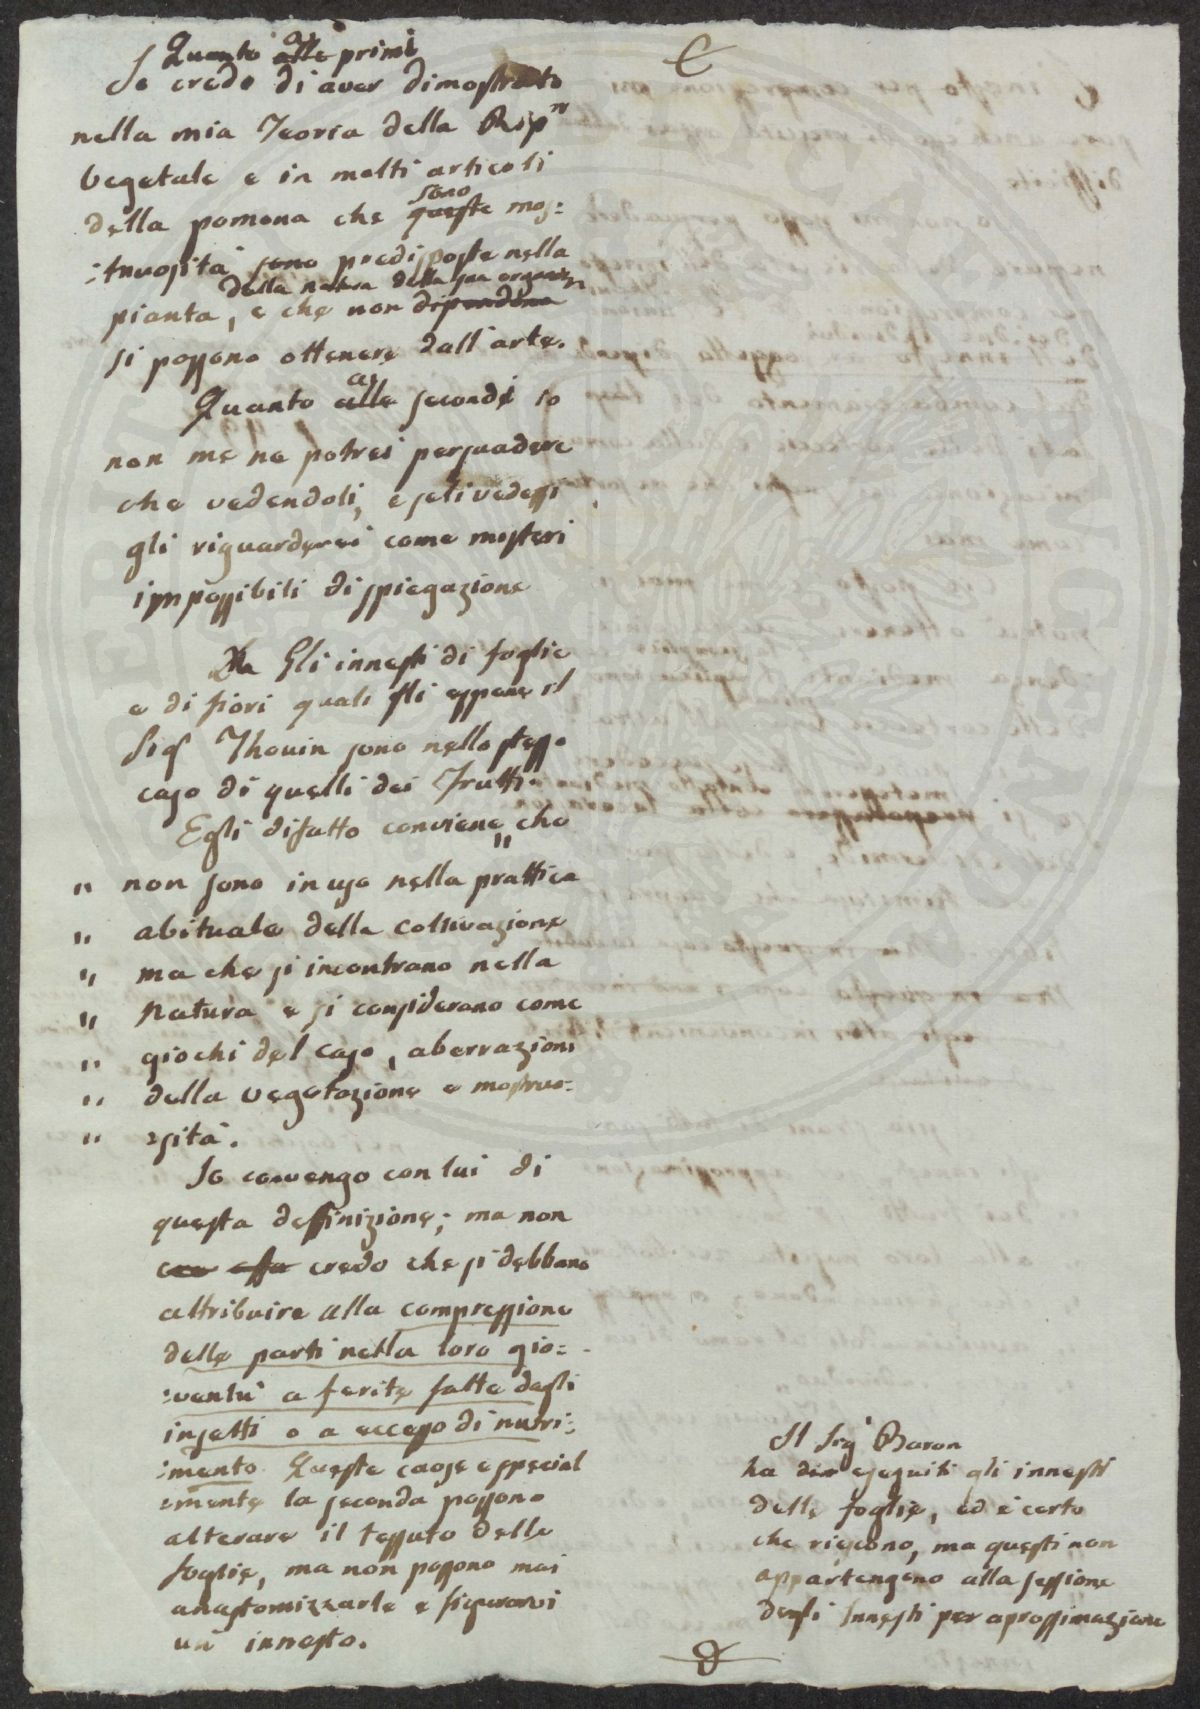 Quanto ai alle primi
Io credo di aver dimostrato
nella mia Teoria della Rip.ne
Vegetale e in molti articoli
della pomona che sono queste mos=
=truosità sono predisposte nella
dalla natura della sua organiz.n
pianta, e che non dipendono
si possono ottenere dall'arte.
Quanto ai alle secondi io
non me ne potrei persuadere
che vedendoli, e se li vedessi
gli riguarderei come misteri
impossibili di spiegazione
Ma Gli innesti di foglie
e di fiori quali gli espone il
Sig.r Thouin sono nello stesso
caso di quelli dei Frutti.
Egli difatto conviene „ che
„ non sono in uso nella prattica
„ abituale della coltivazione
„ ma che si incontrano nella
„ Natura e si considerano come
„ giochi del caso, aberrazioni
„ della vegetazione e mostruo=
„ =sità.
Io convengo con lui di
questa deffinizione; ma non
cre essa credo che si debbano
attribuire alla compressione
delle parti nella loro gio=
=ventù a ferite fatte dagli
insetti o a eccesso di nutri=
=mento. Queste cause e special
=mente la seconda possono
alterare il tessuto delle
foglie, ma non possono mai
anastomizzarle e figurarvi
un innesto.
Il Sig.r Baron
ha eseguiti gli innesti
delle foglie, ed è certo
che riescono, ma questi non
appartengono alla sessione
degli Innesti per aprossimazione